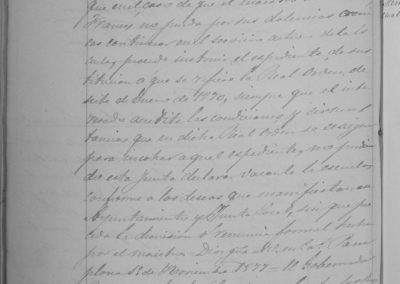 que en el caso de que el maestro
Frances no pueda por sus dolencias
continuar en el servicio activo de la
procede instruir el expediente de sus
titucion a que se refiere la Real Orden de
siete de Enero de 1870, siempre que el inte
resado acredite las condiciones y circuns
tancias que en dicha Real Orden se
para incohar aquel expediente, no pudien
do esta Junta declarar vacante la escuela
conforme a los deseos que manifiestan ese
Ayuntamiento y Junta local, sin que pre
ceda la dimision o renuncia formal hecha
por el maestro = Dios gue a V. m. a.s Pam
plona de Noviembre 1877 = El Gobernador